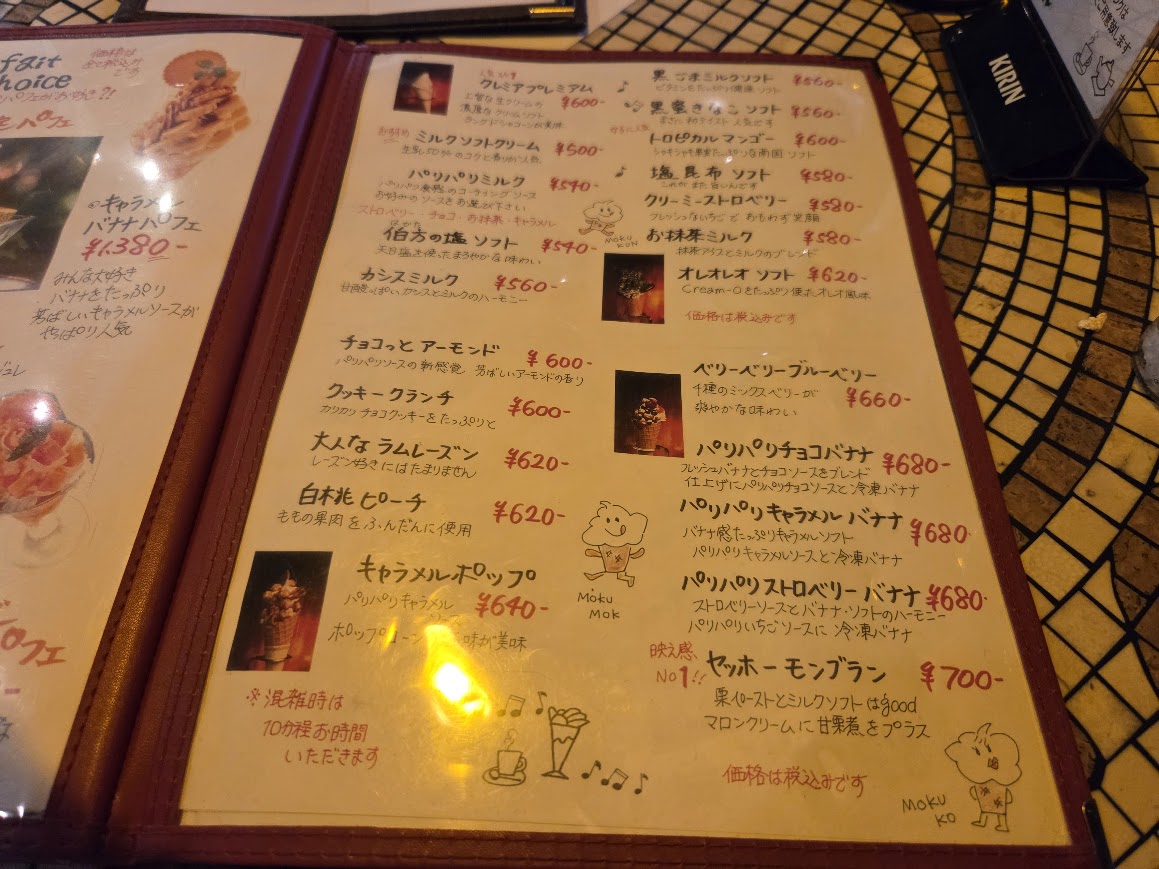 fait
hoice
価格は
全て税込み
です
パフェがお好き?!
パフェ
キャラメル
バナナパフェ
¥1.380-
みんな大好き
バナナをたっぷり
芳ばしいキャラメルソースが
やっぱり人気
ジュレ
パフェ
人気No.1
クレミアプレミアム
上質な生クリームの
¥600-
濃厚なクリームソフト
ラングドシャコーンが美味
お勧め
ミルクソフトクリーム
¥500-
生乳50%のコクと香りが人気
パリパリミルク
¥540-
パリパリ食感のコーティングソース
お好みのソースをお選び下さい
ストロベリー・チョコ・お抹茶・キャラメル
はかた
伯方の塩 ソフト
¥540-
天日塩を使ったまろやかな味わい
カシスミルク
¥560-
甘酸っぱいカシスとミルクのハーモニー
チョコっと アーモンド
¥600-
パリパリソースの新感覚 芳ばしいアーモンドの香り
クッキー クランチ
¥600-
カリカリ チョコクッキーをたっぷりと
大人な ラムレーズン
¥620-
レーズン好きにはたまりません
白桃 ピーチ
¥620-
ももの果肉をふんだんに使用
キャラメルポップ
パリパリキャラメル
ソース
¥640-
ポップコーン
味が美味
※混雑時は
10分程お時間
いただきます
黒ごまミルクソフト
¥560-
ビタミンをたっぷり健康 ソフト
黒蜜きなこ ソフト
¥560-
まさに和テイスト 人気です
トロピカル マンゴー
¥600-
シャキシャキ果実たっぷりな南国 ソフト
塩 昆布 ソフト
¥580-
これがまた旨いんです
クリーミーストロベリー
¥580-
フレッシュないちごで おもわず笑顔
MOKU
KUN
お抹茶ミルク
¥580-
抹茶アイスとミルクのブレンド
オレオレオ ソフト
¥620-
Cream-Oをたっぷり使ったオレオ風味
価格は税込みです
ベリーベリーブルーベリー
千種のミックスベリーが
¥660-
爽やかな味わい
パリパリチョコバナナ
¥680-
フレッシュバナナとチョコソースをブレンド
仕上げにパリパリチョコソースと冷凍バナナ
パリパリキャラメル バナナ
¥680-
バナナ感たっぷりキャラメルソフト
パリパリキャラメルソースと冷凍バナナ
パリパリストロベリー バナナ
¥680-
ストロベリーソースとバナナ・ソフトのハーモニー
パリパリいちごソースに 冷凍バナナ
MOKU
MOK
映え感
No1!!
ヤッホー モンブラン
¥700-
栗ペーストとミルクソフトはgood
マロンクリームに甘栗煮をプラス
価格は税込みです
MOKU
KO
KIRIN